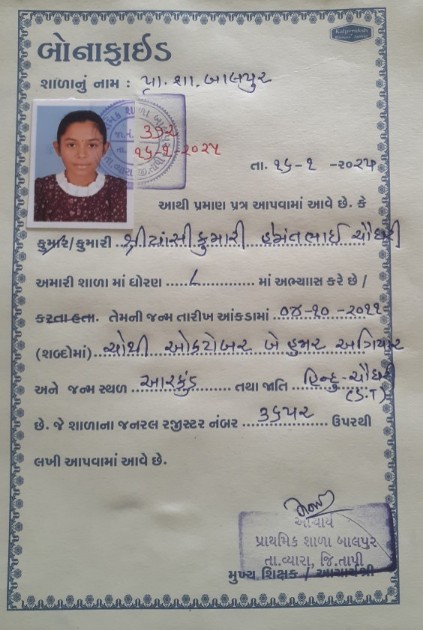 Kalpvruksh
બોનાફાઈડ
શાળાનું નામ : પ્રા. શા. બાલપુર
જા.નં. ૩૩૨
તા. ૧૬-૧-૨૦૨૫
તા. ૧૬-૧ -૨૦૨૫
આથી પ્રમાણ પત્ર આપવામાં આવે છે. કે
કુમાર/કુમારી હેમંતભાઈ ચૌધરી
અમારી શાળા માં ધોરણ ૮ માં અભ્યાસ કરે છે /
કરતા હતા. તેમની જન્મ તારીખ આંકડામાં ૦૪-૧૦ -૨૦૧૧
(શબ્દોમાં) ચોથી ઓક્ટોબર બે હજાર અગિયાર
અને જન્મ સ્થળ આરકુંડ તથા જાતિ હિન્દુ-ચૌધરી
(S.T)
છે. જે શાળાના જનરલ રજીસ્ટર નંબર ૩૬૫૨ ઉપરથી
લખી આપવામાં આવે છે.
આચાર્ય
પ્રાથમિક શાળા બાલપુર
તા.વ્યારા, જિ.તાપી
મુખ્ય શિક્ષક / આચાર્યશ્રી